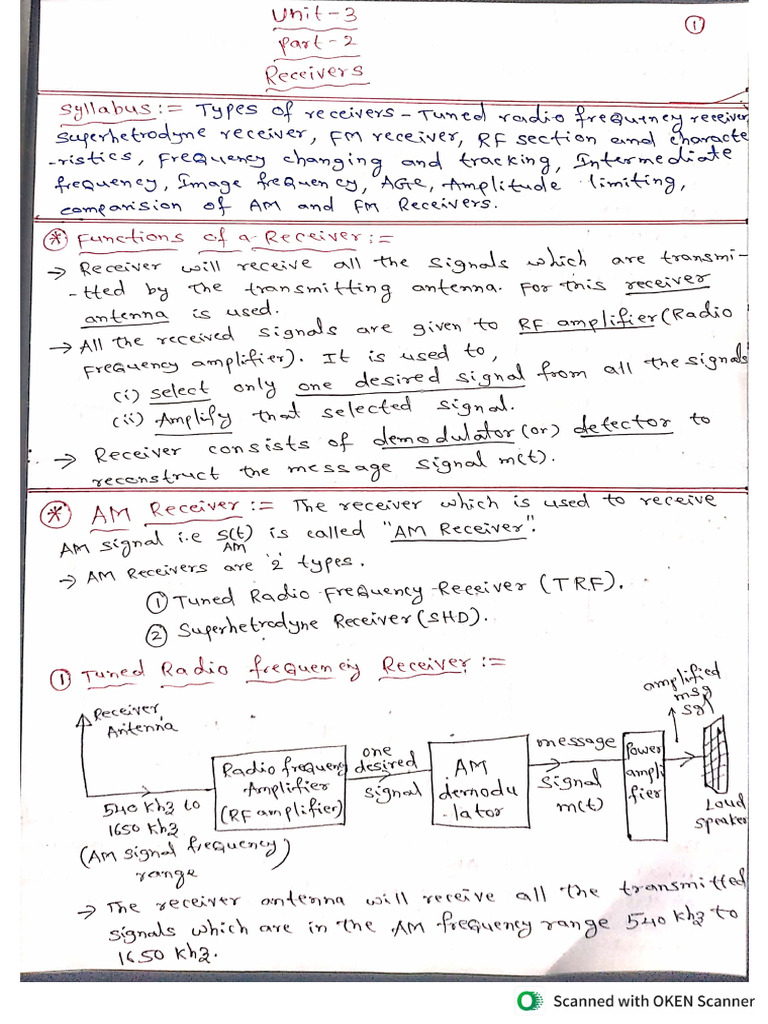 Unit-3
①
Part-2
Receivers
Syllabus:= Types of receivers - Tuned radio frequency receiver
Superhetrodyne receiver, FM receiver, RF section and characte
-ristics, Frequency changing and tracking, Intermediate
frequency, Image frequency, AGC, Amplitude limiting,
comparision of AM and FM Receivers.
* Functions of a Receiver:=
→ Receiver will receive all the signals which are transmi-
-tted by the transmitting antenna. For this receiver
antenna is used.
→ All the received signals are given to RF amplifier (Radio
Frequency amplifier). It is used to,
(i) select only one desired signal from all the signals
(ii) Amplify that selected signal.
→ Receiver consists of demodulator (or) detector to
reconstruct the message signal m(t).
* AM Receiver:= The receiver which is used to receive
AM signal i.e s(t) is called "AM Receiver".
AM
→ AM Receivers are '2' types.
① Tuned Radio Frequency Receiver (TRF).
② Superhetrodyne Receiver (SHD).
① Tuned Radio frequency Receiver:=
Receiver
Antenna
540 khz to
1650 khz
(AM signal frequency)
range
Radio frequency
Amplifier
(RF amplifier)
one
desired
signal
AM
demodu
-lator
message
signal
m(t)
Power
ampli
fier
amplified
msg
sgl
Loud
speaker
→ The receiver antenna will receive all the transmitted
signals which are in the AM frequency range 540 khz to
1650 khz.
Scanned with OKEN Scanner